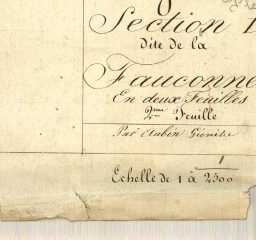 Section
dite de la
Fauconne
En deux Feuilles
2me Feuille
Par Aubin
1
Echelle de 1 à 2500